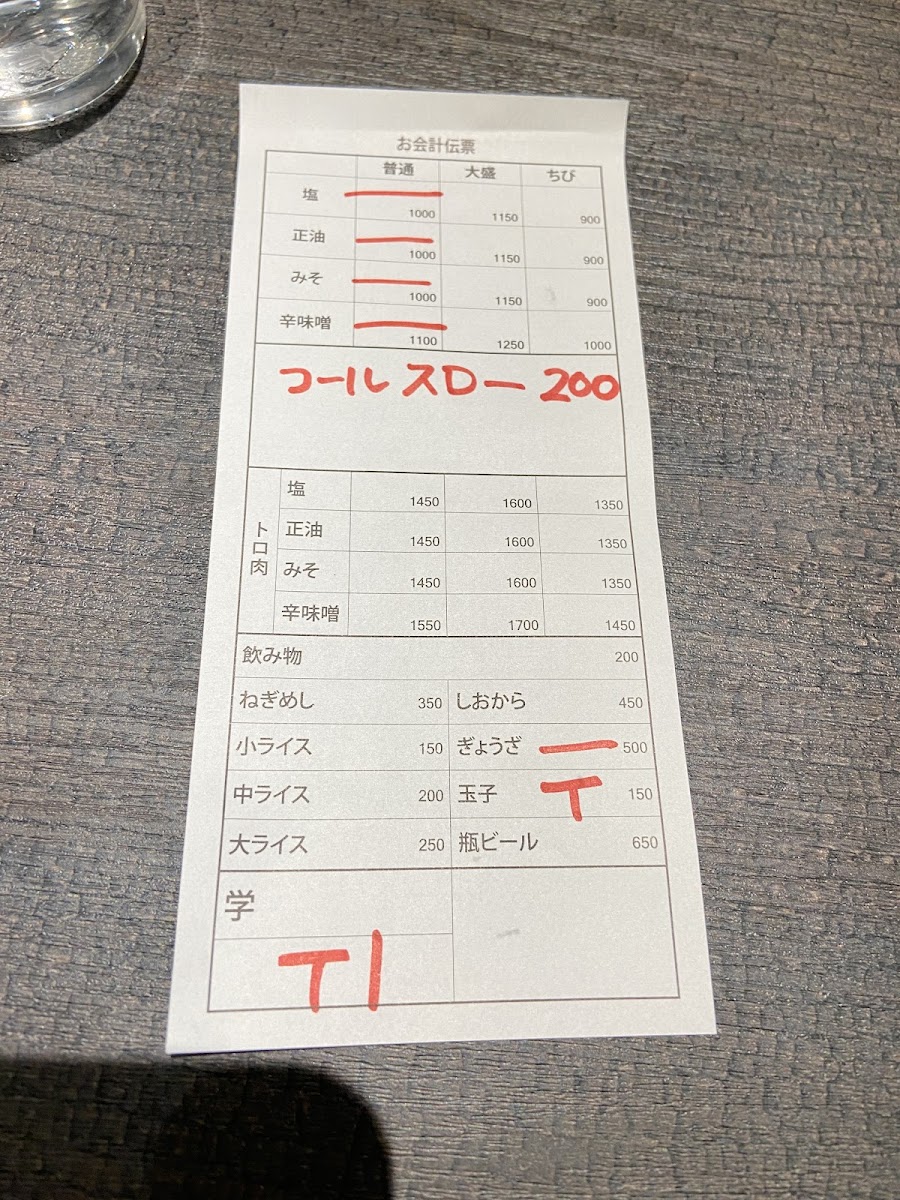 お会計伝票
普通 大盛 ちび
塩 1000 1150 900
正油 1000 1150 900
みそ 1000 1150 900
辛味噌 1100 1250 1000
コールスロー 200
トロ肉
塩 1450 1600 1350
正油 1450 1600 1350
みそ 1450 1600 1350
辛味噌 1550 1700 1450
飲み物 200
ねぎめし 350 しおから 450
小ライス 150 ぎょうざ 一 500
中ライス 200 玉子 T 150
大ライス 250 瓶ビール 650
学
T1